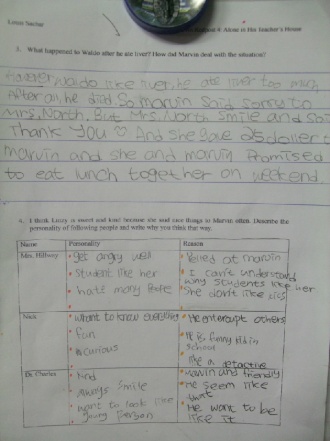 Alone in His Teacher's House
3. What happened to Waldo after he ate liver? How did Marvin deal with the situation?
However, waldo like liver, he ate liver too much.
After all, he died. So marvin said sorry to
Mrs. North. But Mrs. North smile and said
Thank you ♡ And she gave 25 dollar to
marvin and she and marvin promised
to eat lunch together on weekend.
4. I think Lizzy is sweet and kind because she said nice things to Marvin often. Describe the
personality of following people and write why you think that way.
Name Personality Reason
Mrs. Hillway get angry well yelled at marvin
student like her I can't understand
why students like her
hate many people She don't like kids
Nick want to know everything He interrupt others
fun He is funny kid in
school
curious like a detective
Dr. Charles kind marvin and friendly
always smile He seem like
want to look like He want to be
young person like it